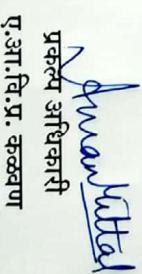 Aman Mittal
प्रकल्प अधिकारी
ए.आ.वि.प्र. कळवण